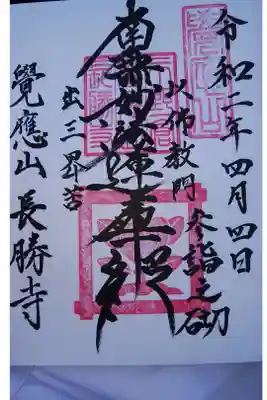 令和二年四月四日
参詣之砌
以佛教門
南無妙法蓮華経
出三界苦
覺應山 長勝寺